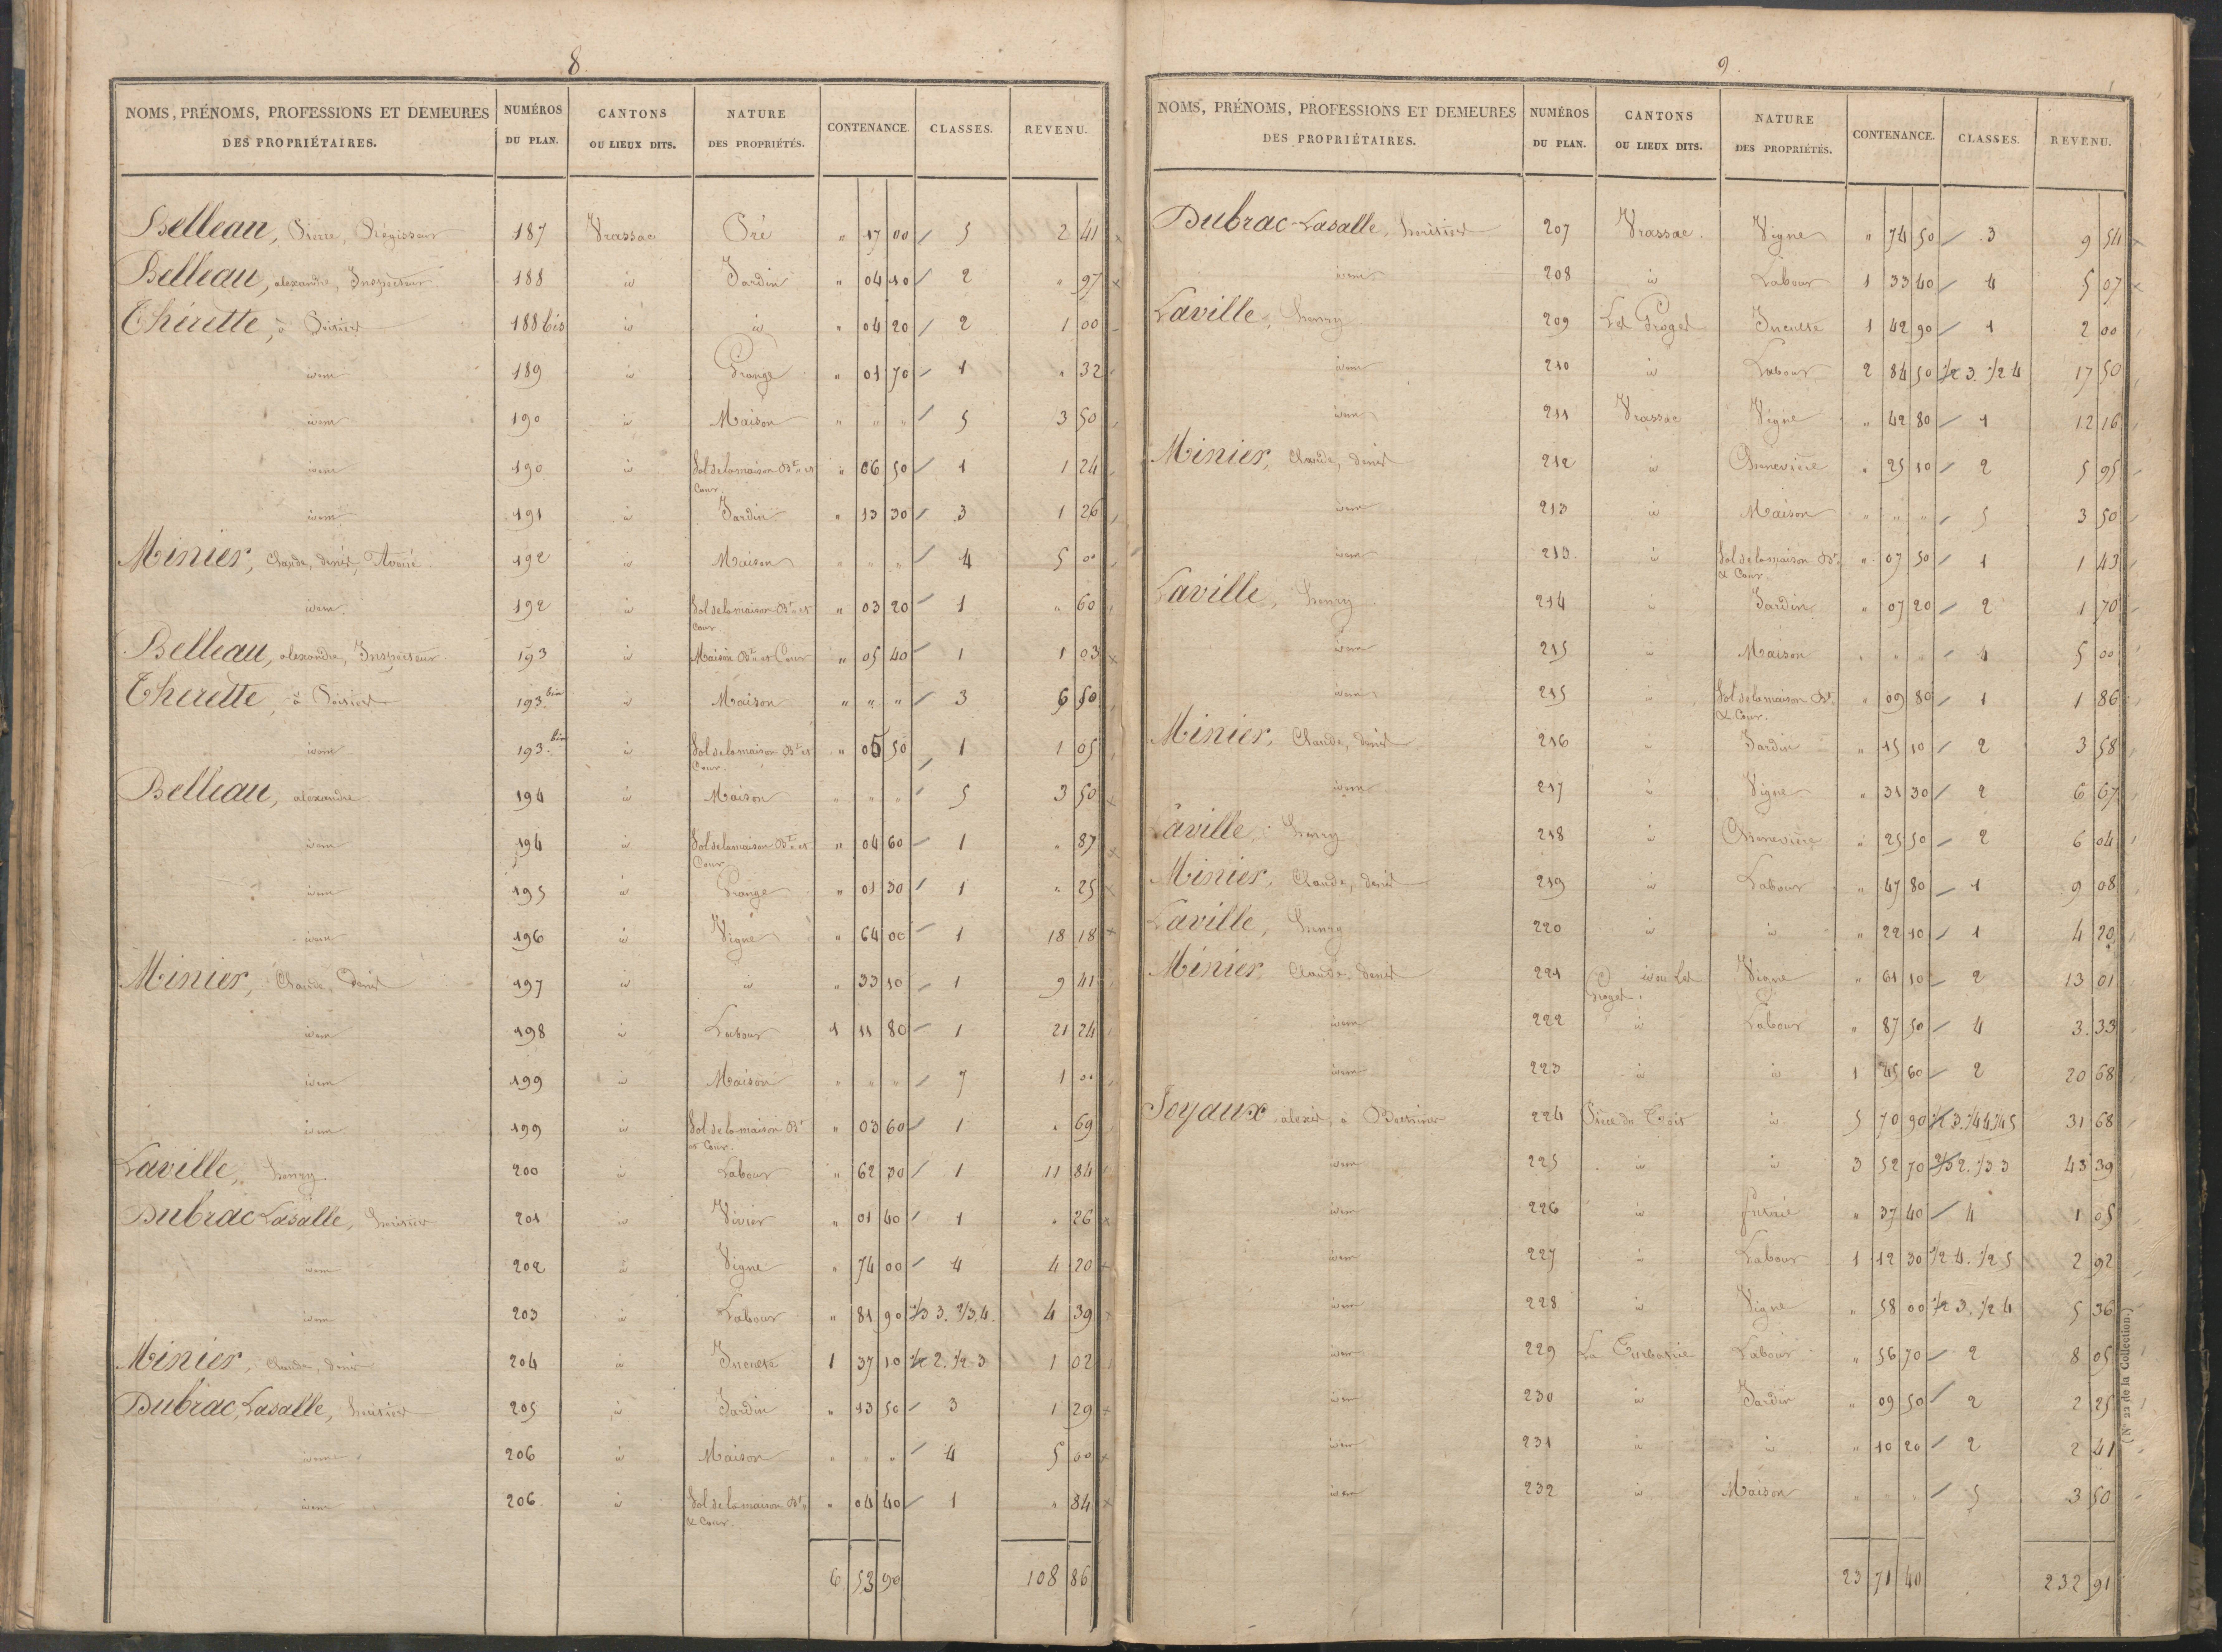 8.
NOMS, PRÉNOMS, PROFESSIONS ET DEMEURES DES PROPRIÉTAIRES. NUMÉROS DU PLAN. CANTONS OU LIEUX DITS. NATURE DES PROPRIÉTÉS. CONTENANCE. CLASSES. REVENU.
Belleau, Pierre, Régisseur 187 Vrassac Pré " 17 00 / 5 2 41 x
Belleau, alexandre, Inspecteur 188 id Jardin " 04 10 / 2 " 97 x
Thérette, à 188 bis id id " 04 20 / 2 1 00
idem 189 id Grange " 01 70 / 1 " 32
idem 190 id Maison " " " / 5 3 50
idem 190 id Sol de la maison Bt. et Cour. " 06 50 / 1 1 24
idem 191 id Jardin " 13 30 / 3 1 26
Minier, Claude, denis, Avoué 192 id Maison " " " / 4 5 00
idem 192 id Sol de la maison Bt. et Cour. " 03 20 / 1 " 60
Belleau, alexandre, Inspecteur 193 id Maison Bt. et Cour " 05 40 1 1 03 x
Therette, à 193 bis id Maison " " " / 3 6 50
idem 193 bis id Sol de la maison Bt. et Cour. " 05 50 / 1 1 05
Belleau, alexandre 194 id Maison " " " / 5 3 50 x
idem 194 id Sol de la maison Bt. et Cour " 04 60 / 1 " 87 x
idem 195 id Grange " 01 30 / 1 " 25 x
idem 196 id Vigne " 64 00 / 1 18 18 x
Minier, Claude, Denis 197 id id " 33 10 / 1 9 41
idem 198 id Labour 1 11 80 / 1 21 24
idem 199 id Maison " " " / 7 1 00
idem 199 id Sol de la maison Bt. et Cour. " 03 60 / 1 " 69
Laville, henry 200 id Labour " 62 30 / 1 11 84
Dubrac Lasalle, héritier 201 id Vivier " 01 40 / 1 " 26 x
idem 202 id Vigne " 74 00 / 4 4 20 x
idem 203 id Labour " 81 90 1/3 3. 2/3 4. 4 39 x
Minier, Claude, denis 204 id Inculte 1 37 10 1/2 2. 1/2 3 1 02
Dubrac, Lasalle, héritier 205 id Jardin " 13 50 / 3 1 29 x
idem 206 id Maison " " " / 4 5 00 x
idem 206 id Sol de la maison Bt. & Cour. " 04 40 / 1 " 84 x
6 53 90 108 86
9.
NOMS, PRÉNOMS, PROFESSIONS ET DEMEURES DES PROPRIÉTAIRES. NUMÉROS DU PLAN. CANTONS OU LIEUX DITS. NATURE DES PROPRIÉTÉS. CONTENANCE. CLASSES. REVENU.
Dubrac-Lasalle, héritier 207 Vrassac. Vigne " 74 50 / 3 9 54 x
idem 208 id Labour 1 33 40 / 4 5 07 x
Laville, henry 209 Les Inculte 1 42 90 / 1 2 00
idem 210 id Labour 2 84 50 1/2 3. 1/2 4 17 50
idem 211 Vrassac Vigne " 42 80 / 1 12 16
Minier, Claude, denis 212 id Chenevière " 25 10 / 2 5 95
idem 213 id Maison " " " / 5 3 50
idem 213 id Sol de la maison Bt. & Cour " 07 50 / 1 1 43
Laville, henry 214 id Jardin " 07 20 / 2 1 70
idem 215 id Maison " " " / 4 5 00
idem 215 id Sol de la maison Bt. & Cour. " 09 80 / 1 1 86
Minier, Claude, denis 216 id Jardin " 15 10 / 2 3 58
idem 217 id Vigne " 31 30 / 2 6 67
Laville, henry 218 id Chenevière " 25 50 / 2 6 04
Minier, Claude, denis 219 id Labour " 47 80 / 1 9 08
Laville, henry 220 id id " 22 10 / 1 4 20
Minier, Claude, denis 221 id ou Les Vigne " 61 10 / 2 13 01
idem 222 id Labour " 87 50 / 4 3.33
idem 223 id id 1 45 60 / 2 20 68
Joyaux alexis, à 224 id 5 70 90 1/2 3. 1/4 4 1/4 5 31 68
idem 225 id id 3 52 70 2/3 2. 1/3 3 43 39
idem 226 id " 37 40 / 4 1 05
idem 227 id Labour 1 12 30 1/2 4. 1/2 5 2 92
idem 228 id Vigne " 58 00 1/2 3. 1/2 4 5 36
idem 229 La Labour " 56 70 / 2 8 05
idem 230 id Jardin " 09 50 / 2 2 25
idem 231 id id " 10 20 / 2 2 41
idem 232 id Maison " " " / 5 3 50
23 71 40 232 91
(N° 22 de la Collection.)